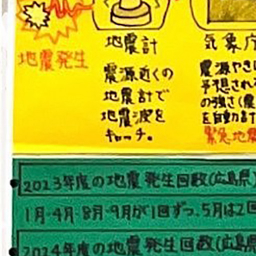 地震発生
地震計
震源近くの
地震計で
地震波を
キャッチ。
気象庁
震源やき
予想され
の強さ(震
を自動計
緊急地震
2023年度の地震発生回数(広島県)
1月・4月・8月・9月が1回ずつ、5月は2回
2024年度の地震発生回数(広島県